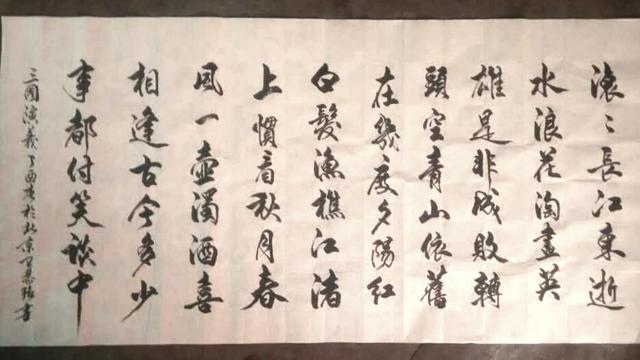 滾〻長江東逝
水浪花淘盡英
雄是非成敗轉
頭空青山依舊
在幾度夕陽紅
白髮漁樵江渚
上慣看秋月春
風一壺濁酒喜
相逢古今多少
事都付笑談中
三國演義丁酉春於北京